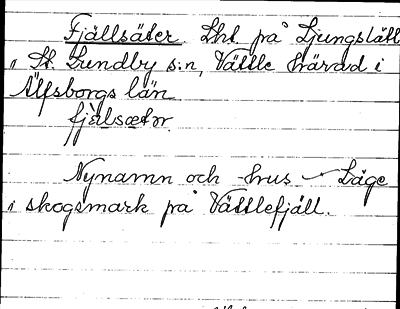 Fjällsäter Lht på Ljungslätt
i St. Lundby s:n, Vättle härad i
Älfsborgs län
fjàlsætr.
Nynamn och -hus – Läge
i skogsmark på Vättlefjäll.